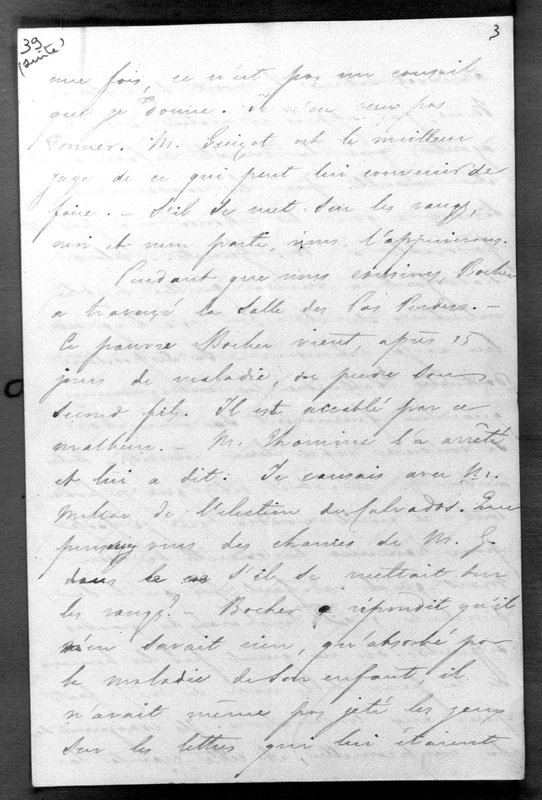 39
(suite)
3
une fois, ce n'est pas un conseil
que je donne. Je n'en veux pas
donner. M. Guizot est le meilleur
juge de ce qui peut lui convenir de
faire. – S'il se met sur les rangs,
moi et mon parti, nous l'appuierons.
Pendant que nous causions, Bocher
a traversé la Salle des Pas Perdus. –
Ce pauvre Bocher vient, après 15
jours de maladie, de perdre son
second fils. Il est accablé par ce
malheur. – M. Thomine l'a arrêté
et lui a dit: Je causais avec Mr.
de l'élection du Calvados. Que
pensez vous des chances de M. G.
dans le s'il se mettait sur
les rangs? – Bocher répondit qu'il
n'en savait rien, qu'absorbé par
la maladie de son enfant, il
n'avait même pas jeté les yeux
sur les lettres qui lui étaient